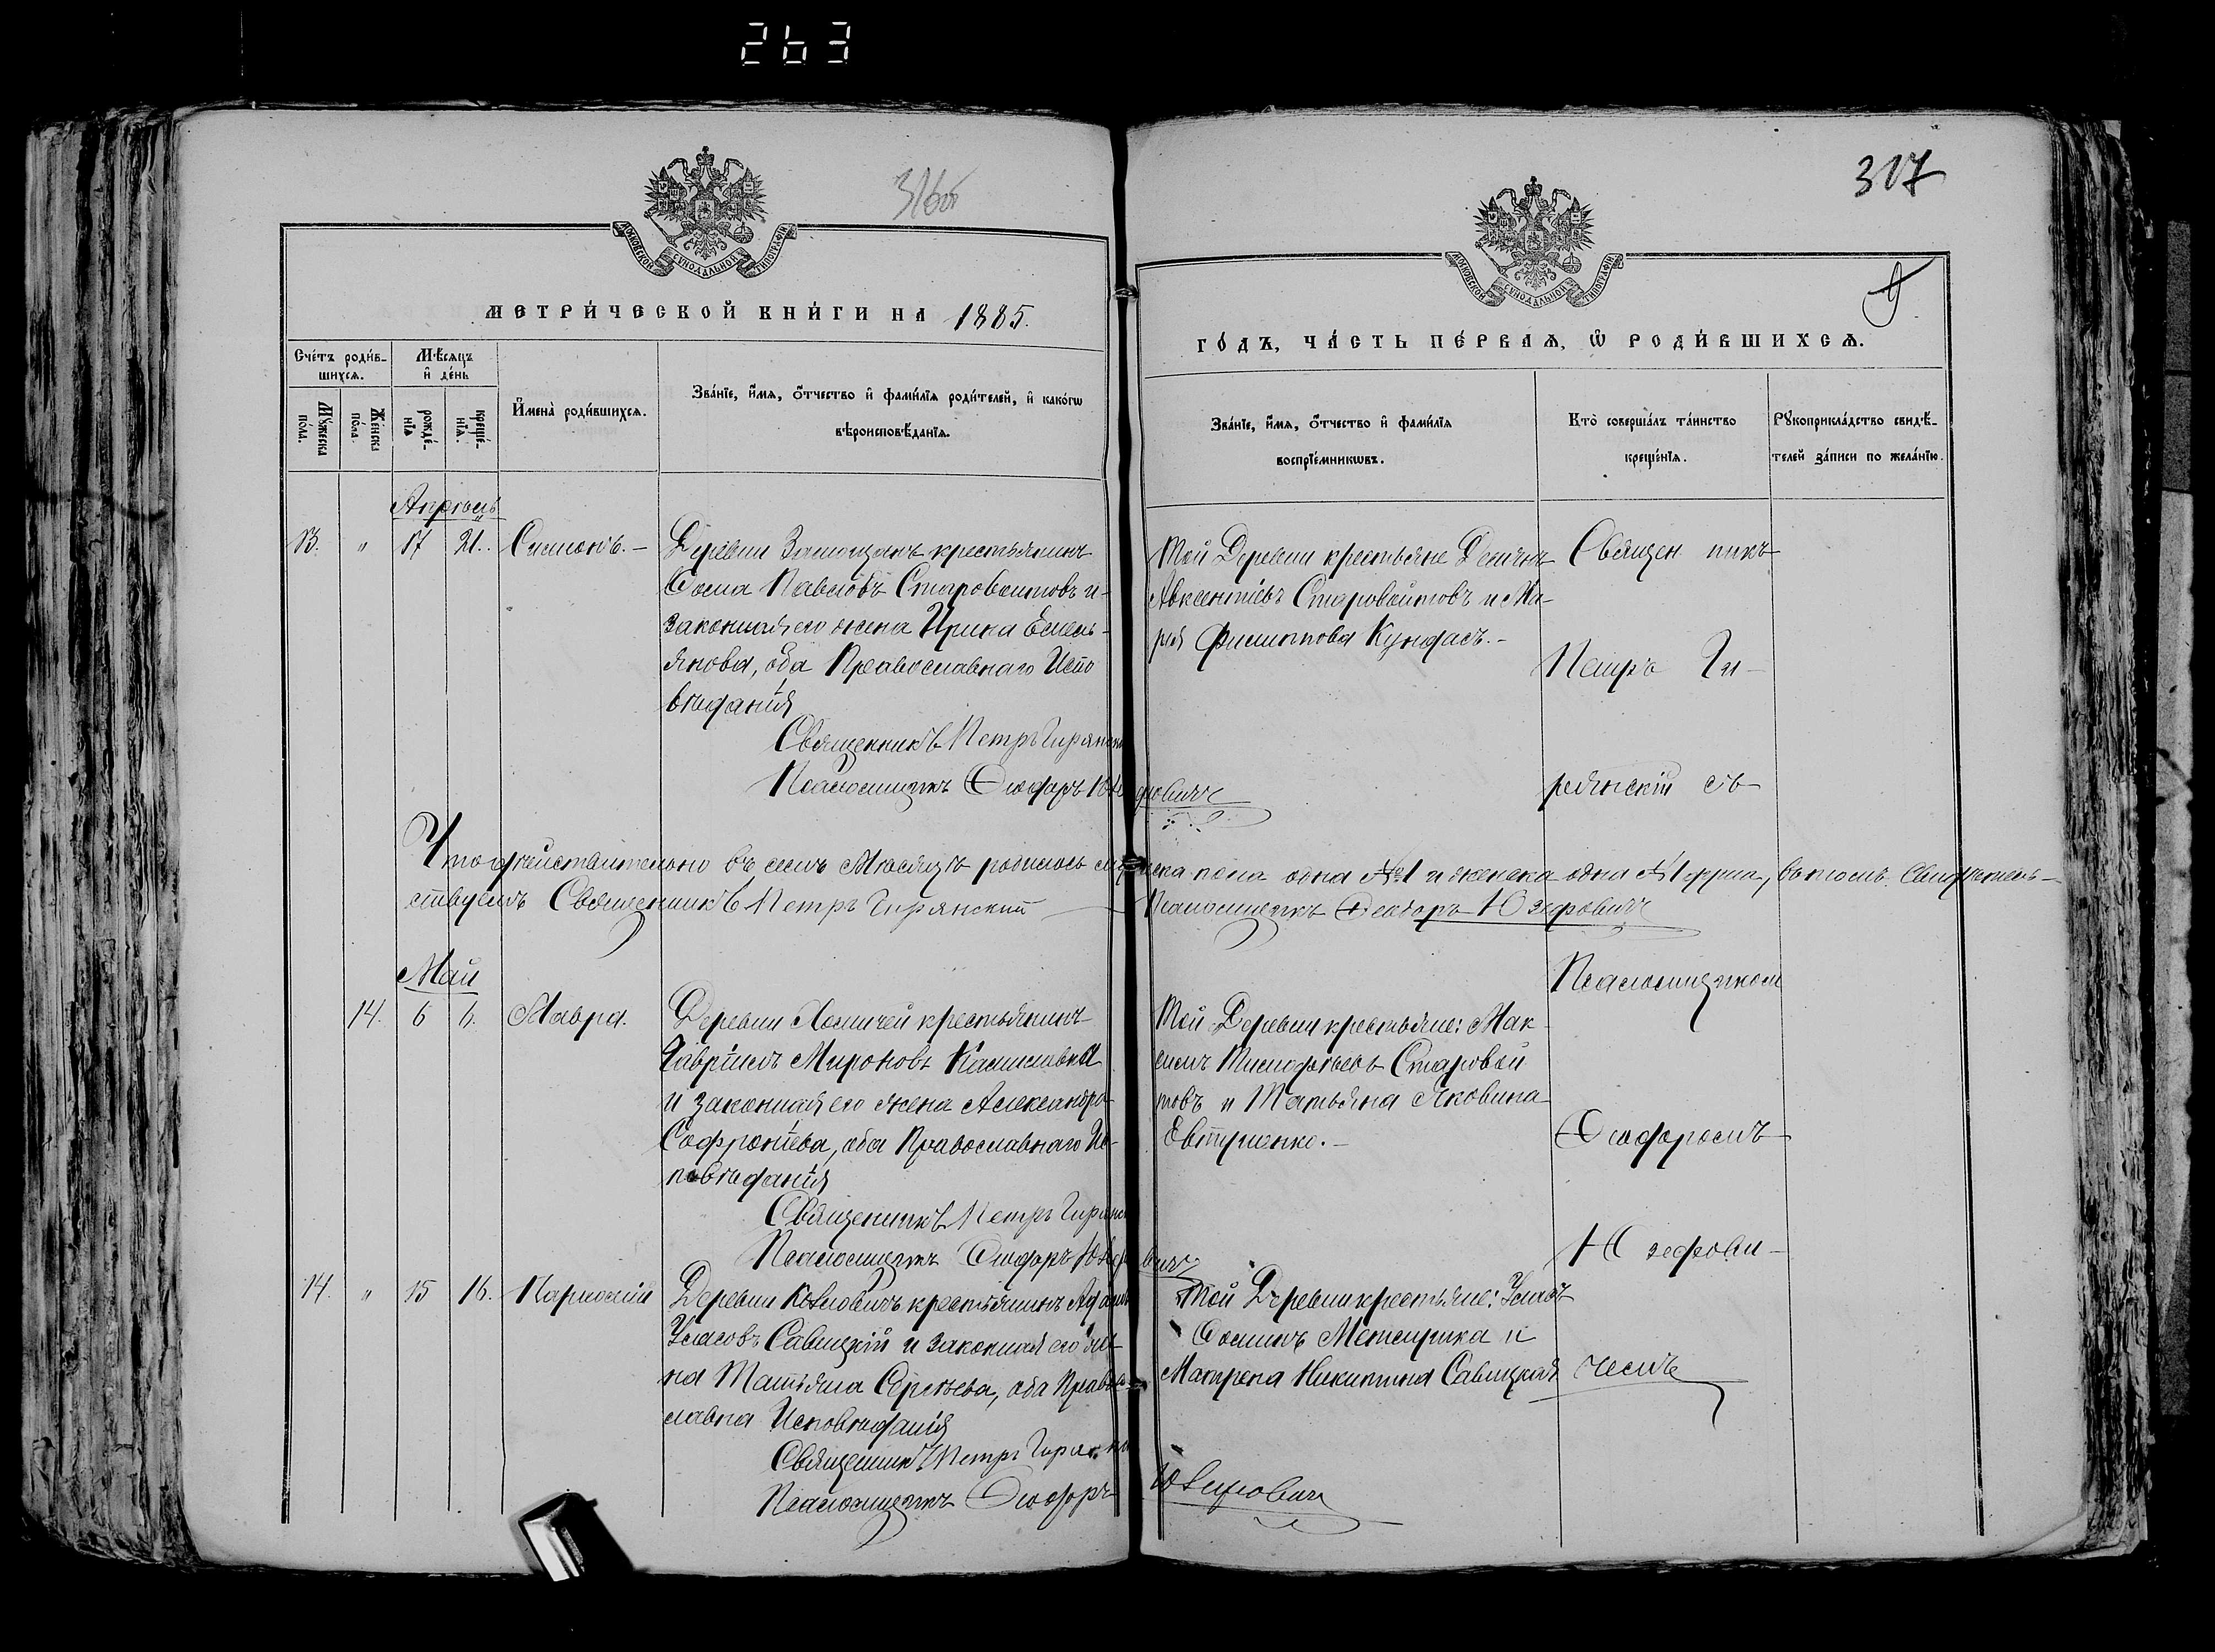 263
316об
317
МОСКОВСКОЙ СѴНОДАЛЬНОЙ ТИПОГРАФІИ
МОСКОВСКОЙ СѴНОДАЛЬНОЙ ТИПОГРАФІИ
9
МЕТРИ́ЧЕСКОЙ КНИ́ГИ НА 1885.
ГО́ДЪ, ЧА́СТЬ ПЕ́РВАѦ, Ѡ РОДИ́ВШИХСѦ.
Сче́тъ роди́в-
шихсѧ.
Мѣ́сяцъ
и҆ де́нь
Мꙋ́жеска
по́ла.
Же́нска
по́ла.
рожде́-
нїѧ
креще́-
нїѧ.
И҆мена̀ роди́вшихсѧ.
Зва́нїе, и҆́мѧ, ѻ҆́тчество и҆ фами́лїѧ роди́телей, и҆ како́гѡ
вѣроисповѣ́данїѧ.
Зва́нїе, и҆́мѧ, ѻ҆́тчество и҆ фами́лїѧ
воспрїе́мникѡвъ.
Кто̀ соверша́лъ та́инство
креще́нїѧ.
Рꙋкоприкла́дство свидѣ́-
телей за́писи по жела́нїю.
Апрѣль
13. " 17 21. Симонъ. –
Деревни крестьянинъ
Ѳома Павловъ Старовойтовъ и
законная его жена Ирина Емель-
янова, оба Православнаго Испо
вѣданія
Священникъ Петръ Гирянскій
Псаломщикъ Ѳеодоръ Юзефовичъ
Той Деревни крестьяне Демьянъ
Авксентіевъ Старовойтовъ и Ма-
рія Филиппова Кундасъ. –
Священникъ
Петръ Ги-
рянскій съ
Что дѣйствительно въ семъ Мѣсяцѣ родилось мужеска пола одна №1 и женска одна №1 души, въ томъ Свидѣтель-
ствуемъ Священникъ Петръ Гирянский Псаломщикъ Ѳеодоръ Юзефовичъ
Май
14. 6 6. Мавра.
Деревни крестьянинъ
Гавріилъ Мироновъ
и законная его жена Александра
Софроніева, оба Православнаго Ис-
повѣданія
Священникъ Петръ Гирянскій
Псаломщикъ Ѳеодоръ Юзефовичъ
Той Деревни крестьяне: Мак-
симъ Тимофѣевъ Старовой
товъ и Татьяна Яковина
Евтушенко. –
Псаломщикомъ
Ѳеодоромъ
Юзефови-
чемъ
14. " 15 16. Пармений
Деревни крестьянинъ
Савицкій и законная его же-
на Татьяна Сергѣева, оба Право-
славна Исповѣданія
Священникъ Петръ Гирянскій
Псаломщикъ Ѳеодоръ Юзефовичъ
Той Деревни крестьяне:
Ѳоминъ и
Матрена Никитина Савицкая